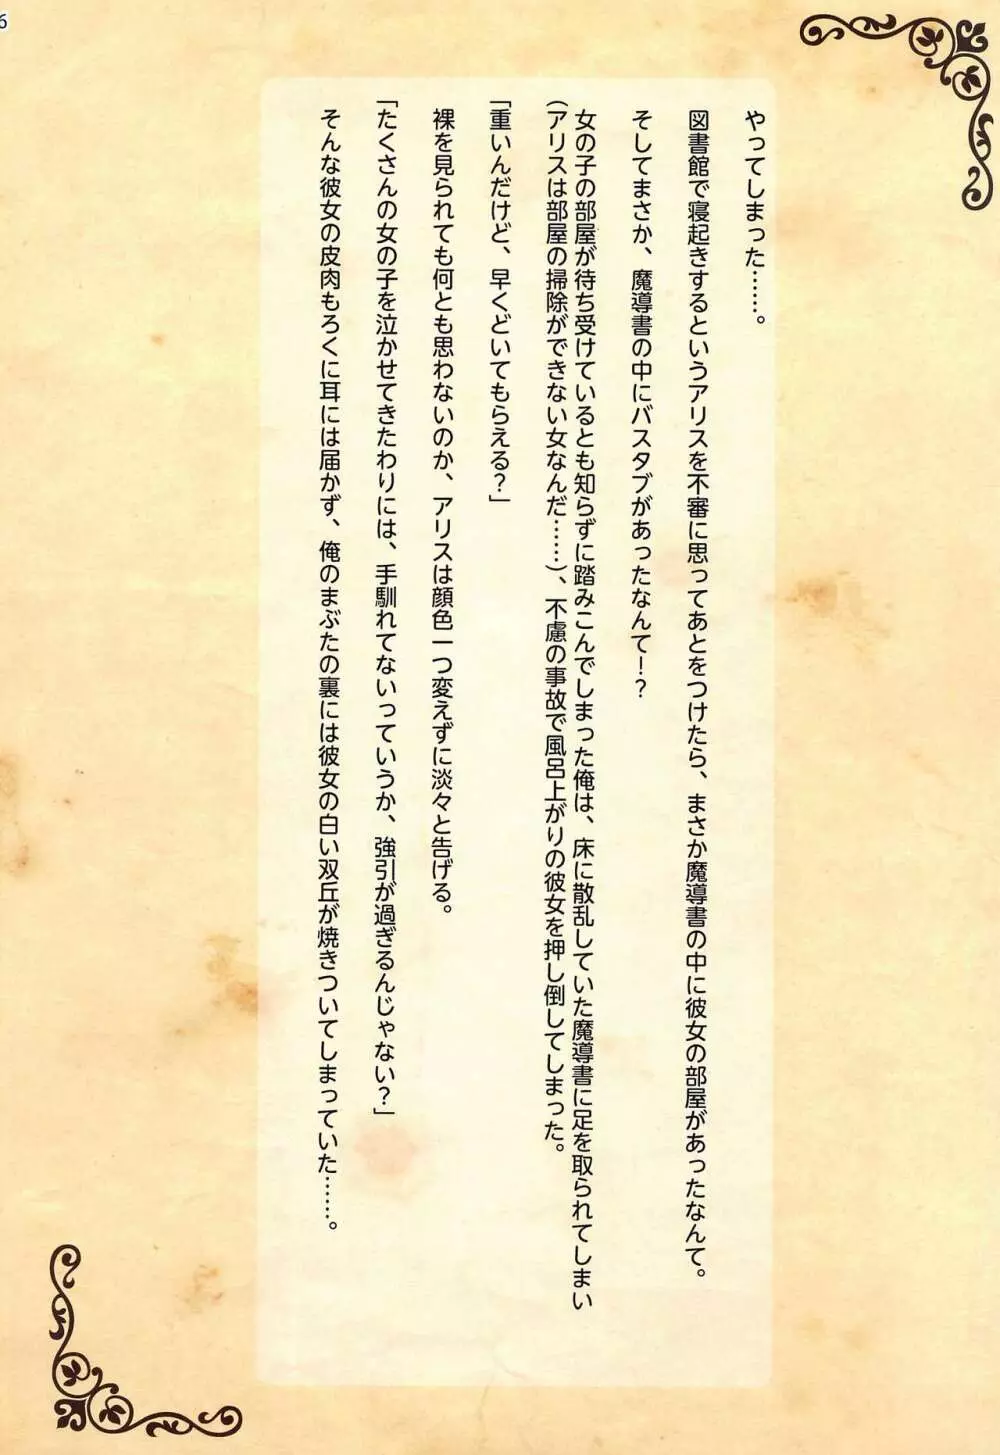 6
やってしまった……。
図書館で寝起きするというアリスを不審に思ってあとをつけたら、まさか魔導書の中に彼女の部屋があったなんて。
そしてまさか、魔導書の中にバスタブがあったなんて！？
女の子の部屋が待ち受けているとも知らずに踏みこんでしまった俺は、床に散乱していた魔導書に足を取られてしまい
（アリスは部屋の掃除ができない女なんだ……）、不慮の事故で風呂上がりの彼女を押し倒してしまった。
「重いんだけど、早くどいてもらえる？」
裸を見られても何とも思わないのか、アリスは顔色一つ変えずに淡々と告げる。
「たくさんの女の子を泣かせてきたわりには、手馴れてないっていうか、強引が過ぎるんじゃない？」
そんな彼女の皮肉もろくに耳には届かず、俺のまぶたの裏には彼女の白い双丘が焼きついてしまっていた……。